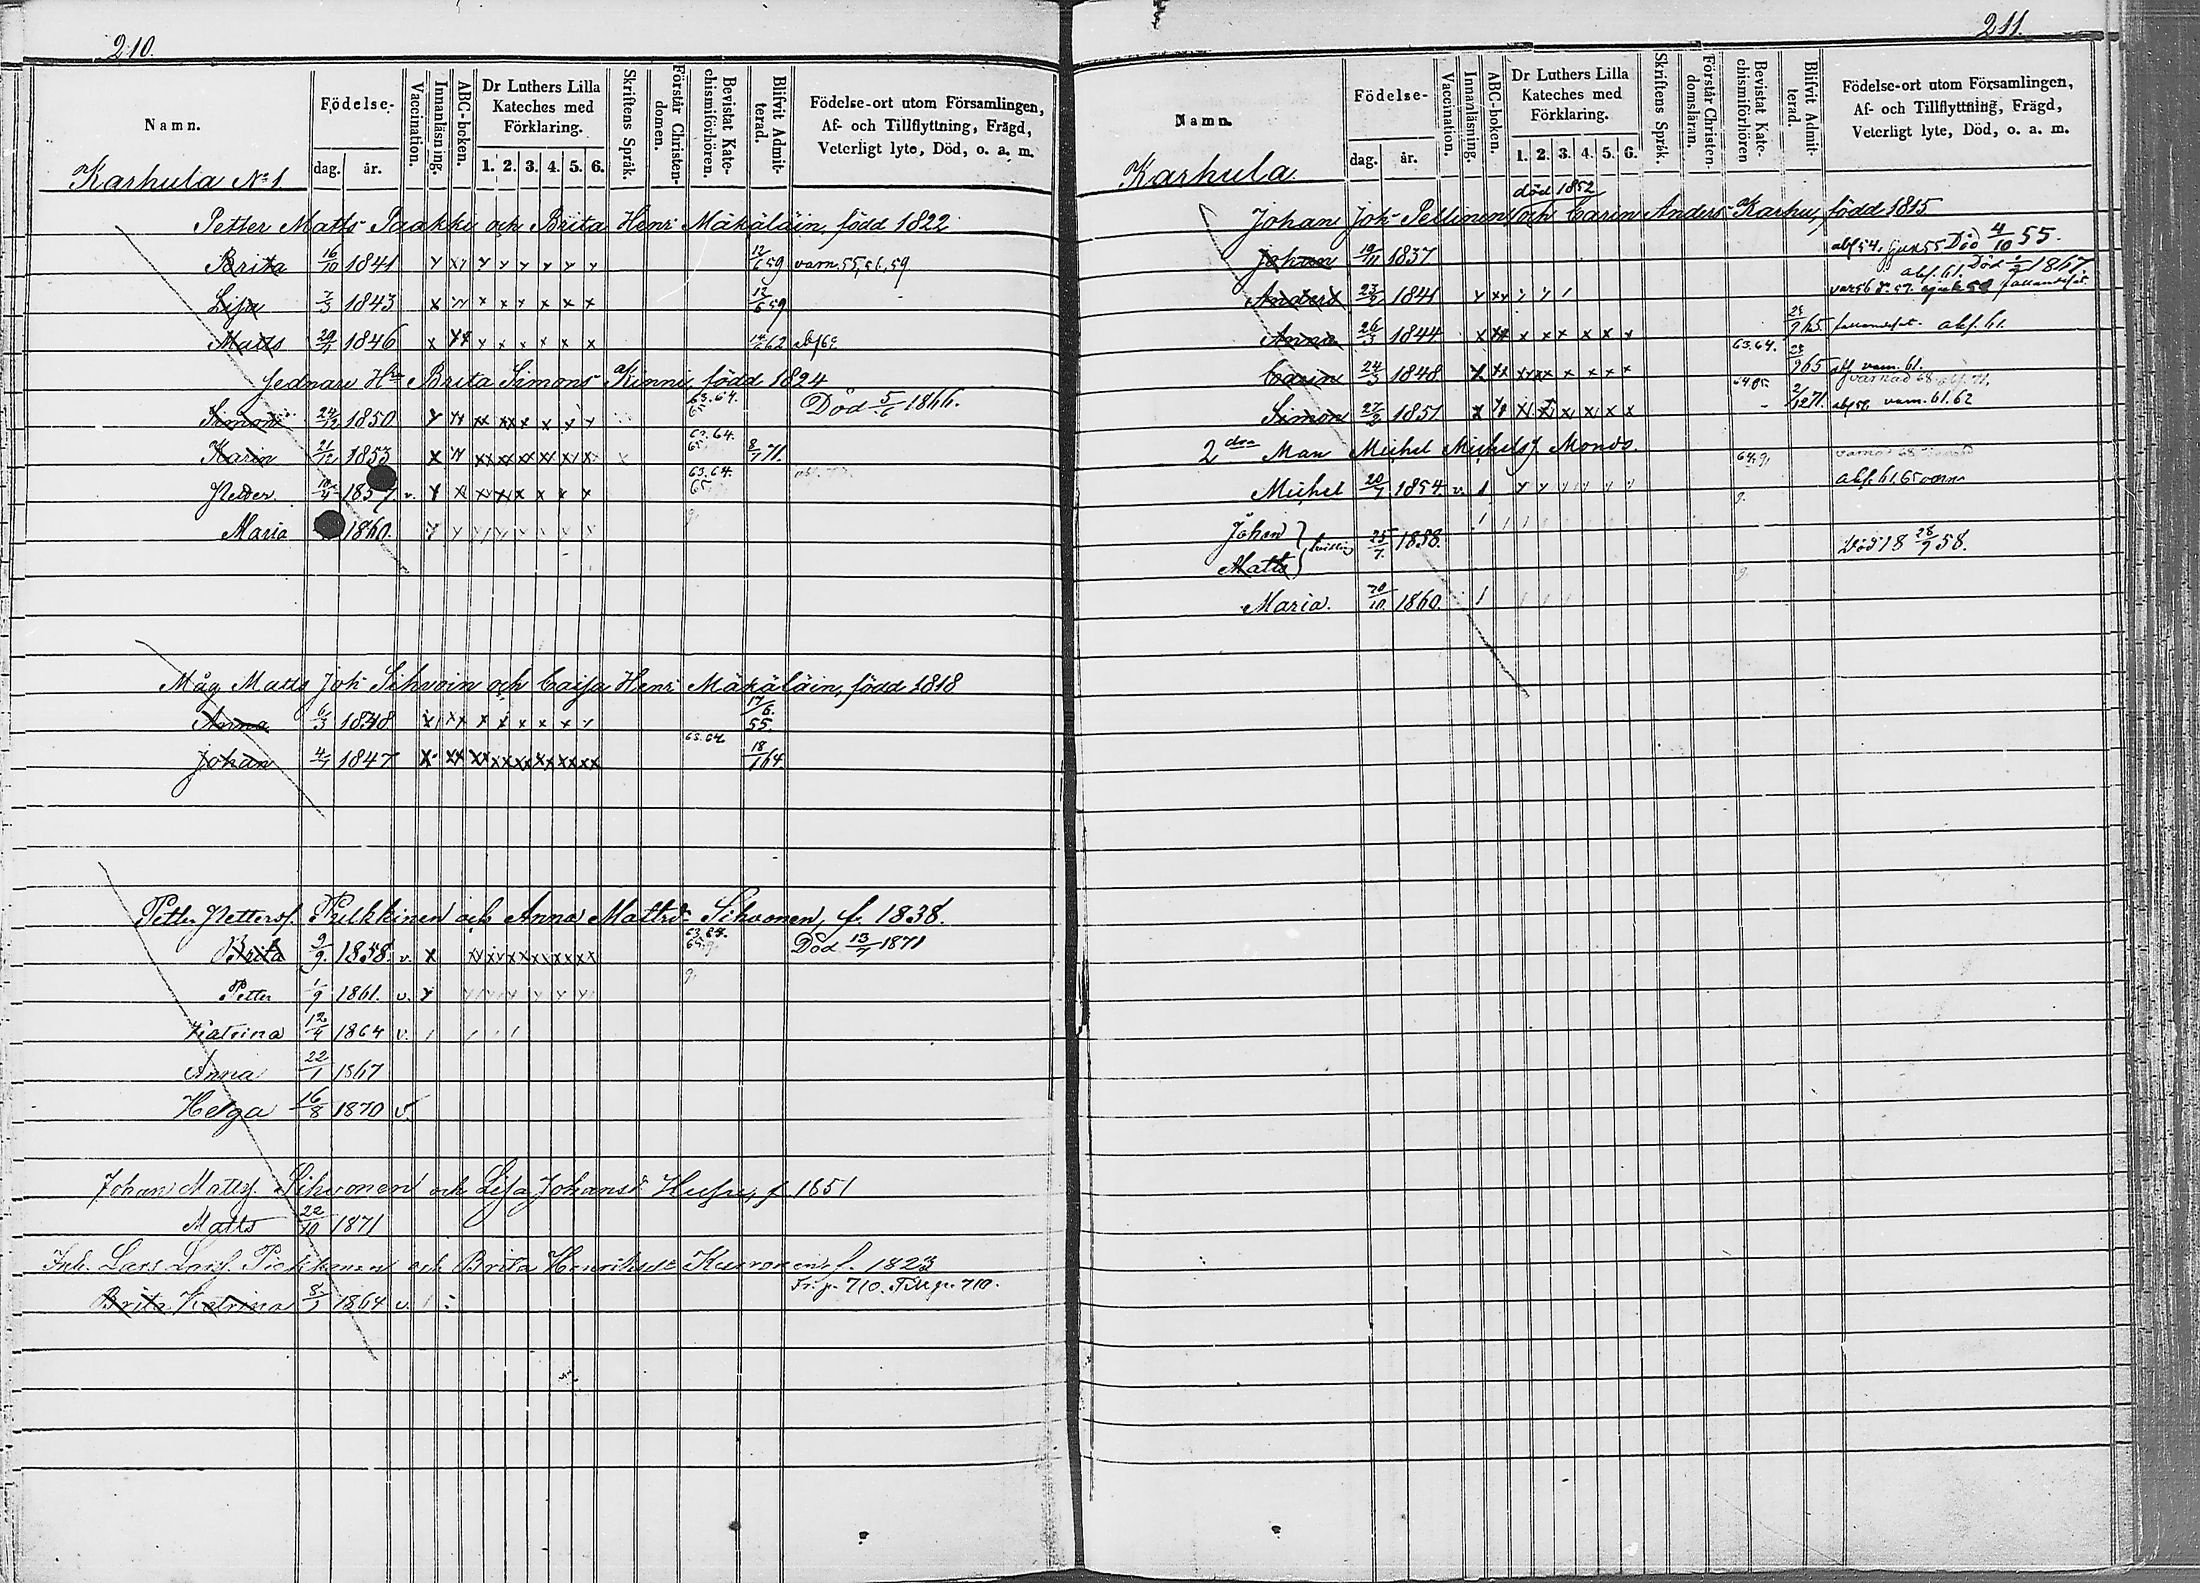 210.
Namn.
Födelse-
dag. år.
Vaccination.
Innanläsning.
ABC-boken.
Dr Luthers Lilla
Kateches med
Förklaring.
1. 2. 3. 4. 5. 6.
Skriftens Språk.
Förstår Christen-
domen.
Bevistat Kate-
chismiförhören.
Blifvit Admit-
terad.
Födelse-ort utom Församlingen,
Af- och Tillflyttning, Frägd,
Veterligt lyte, Död, o. a. m.
Karhula No 1
Petter Matts Paakki och Brita Henr Mäkäläin, född 1822
Brita 16/10 1841 12/6 59 varn. 55, 56, 59
Lisa 7/3 1843 12/6 59
Matts 29/1 1846 62
Sednare Hru Brita Simons Kinni, född 1824
Simon 24/12 1850 63.64. 65 Död 5/6 1866.
Karin 21/12 1853 63.64. 65 8/7 71.
Petter 10/4 1857 v. 63.64. 65
Maria 1860.
Måg Matts Joh Sihvoin och Caisa Henr Mäkäläin, född 1818
Anna 6/3 1838 17/6. 55.
Johan 4/7 1847 63.64 18/1 64.
Petter Petterss. Pulkkinen och Anna Mattsdr Sihvonen, f. 1838.
Brita 9/9. 1858. v. 63.64. Död 13/7 1871
Petter 1/9 1861. v.
Katrina 12/4 1864 v.
Anna 22/1 1867
Helga 16/8 1870 v.
Johan Mattss. Sihvonen och Lisa Johansd Husu, f 1851
Matts 22/10 1871
Inh. Lars Larss. Piekkonen och Brita Henriksdr Kurronen, f. 1823
Brita Katrina 8/1 1864 v. Fr. p. 710. Till p. 710.
211.
Namn.
Födelse-
dag. år.
Vaccination.
Innanläsning.
ABC-boken.
Dr Luthers Lilla
Kateches med
Förklaring.
1. 2. 3. 4. 5. 6.
Skriftens Språk.
Förstår Christen-
domsläran.
Bevistat Kate-
chismiförhören
Blifvit Admit-
terad.
Födelse-ort utom Församlingen,
Af- och Tillflyttning, Frägd,
Veterligt lyte, Död, o. a. m.
Karhula
död 1852
Johan Joh Pellinen och Carin Anders Karhu, född 1815
Johan 19/11 1837 Död 4/10 55.
abs. 61. Död 1867.
Anders 23/2 1841
Anna 26/3 1844 65 abs. 61.
Carin 24/3 1848 63.64. 65 varn. 61.
Simon 27/2 1851 2/12 71. varn. 61. 62
2 dra Man Michel Michelss. Monds.
Michel 20/7 1854 v. abs. 61. 65 varn
Johan
Matts tvilling 25/7. 1858. Död 18 28/7 58.
Maria. 20/10 1860.